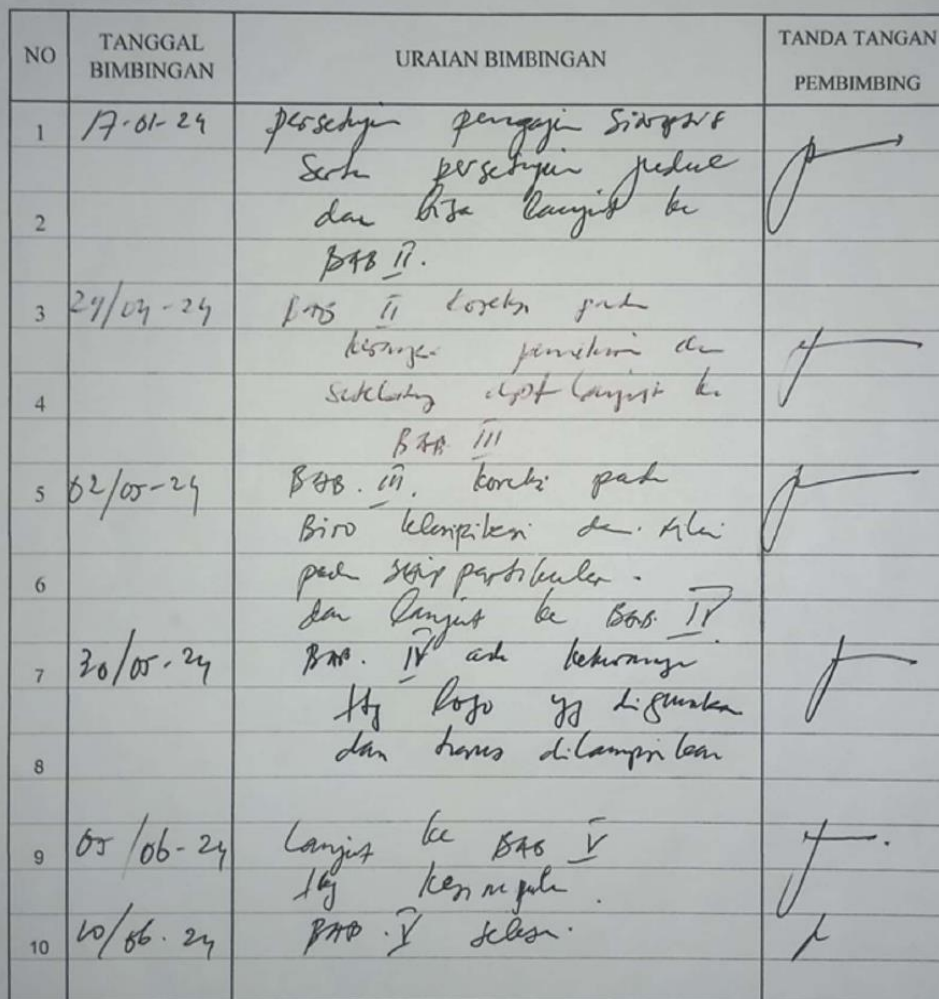 NO TANGGAL BIMBINGAN URAIAN BIMBINGAN TANDA TANGAN PEMBIMBING
1 17-01-24 persetujuan pengajuan Sinopsis
Serta persetujuan judul
2 dan bisa lanjut ke
BAB II.
3 24/04-24 BAB II koreksi pada
kerangka pemikiran dan
4 dpt lanjut ke
BAB III
5 02/05-24 BAB. III. koreksi pada
Biro klasifikasi dan nilai
6 pada partikuler.
dan lanjut ke BAB IV
7 30/05-24 BAB. IV ada kekurangan
ttg logo yg digunakan
8 dan harus dilampirkan
9 05/06-24 Lanjut ke BAB V
ttg kesimpulan.
10 10/06.24 BAB. V selesai.